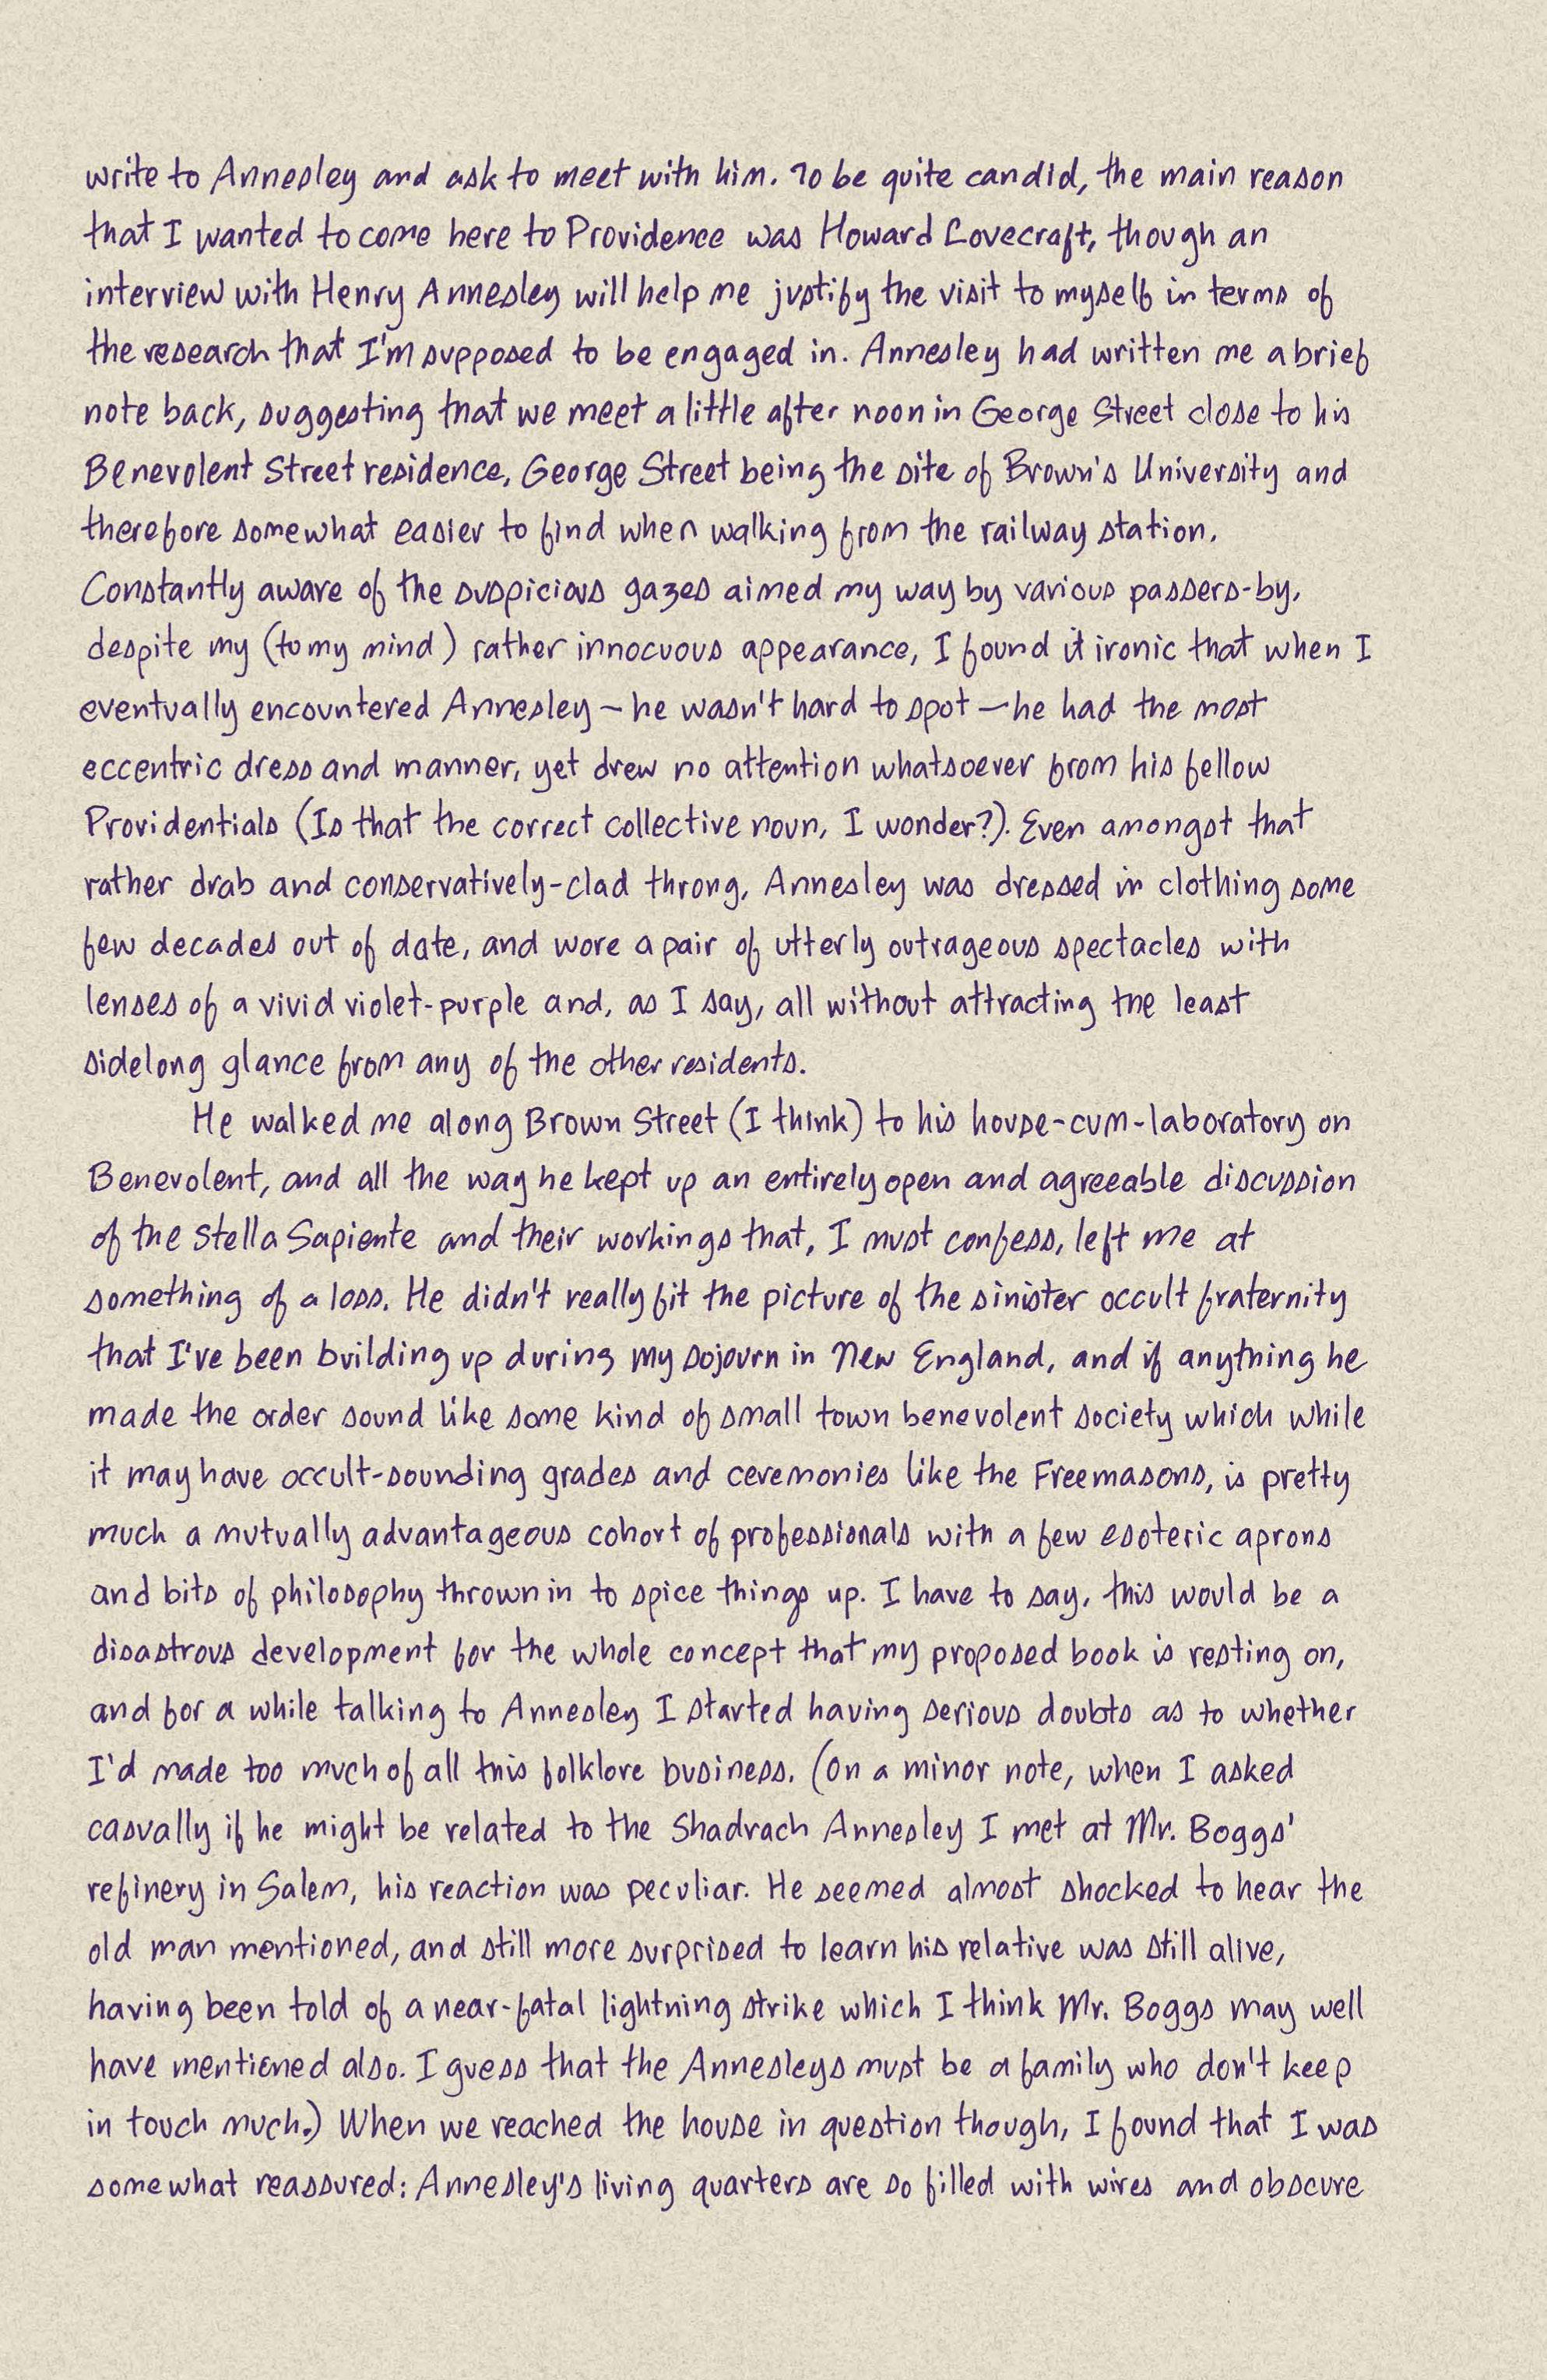 write to Annesley and ask to meet with him. To be quite candid, the main reason
that I wanted to come here to Providence was Howard Lovecraft, though an
interview with Henry Annesley will help me justify the visit to myself in terms of
the research that I'm supposed to be engaged in. Annesley had written me a brief
note back, suggesting that we meet a little after noon in George Street close to his
Benevolent Street residence, George Street being the site of Brown's University and
therefore somewhat easier to find when walking from the railway station.
Constantly aware of the suspicious gazes aimed my way by various passers-by,
despite my (to my mind) rather innocuous appearance, I found it ironic that when I
eventually encountered Annesley – he wasn't hard to spot – he had the most
eccentric dress and manner, yet drew no attention whatsoever from his fellow
Providentials (Is that the correct collective noun, I wonder?). Even amongst that
rather drab and conservatively-clad throng, Annesley was dressed in clothing some
few decades out of date, and wore a pair of utterly outrageous spectacles with
lenses of a vivid violet-purple and, as I say, all without attracting the least
sidelong glance from any of the other residents.
He walked me along Brown Street (I think) to his house-cum-laboratory on
Benevolent, and all the way he kept up an entirely open and agreeable discussion
of the Stella Sapiente and their workings that, I must confess, left me at
something of a loss. He didn't really fit the picture of the sinister occult fraternity
that I've been building up during my sojourn in New England, and if anything he
made the order sound like some kind of small town benevolent society which while
it may have occult-sounding grades and ceremonies like the Freemasons, is pretty
much a mutually advantageous cohort of professionals with a few esoteric aprons
and bits of philosophy thrown in to spice things up. I have to say, this would be a
disastrous development for the whole concept that my proposed book is resting on,
and for a while talking to Annesley I started having serious doubts as to whether
I'd made too much of all this folklore business. (On a minor note, when I asked
casually if he might be related to the Shadrach Annesley I met at Mr. Boggs'
refinery in Salem, his reaction was peculiar. He seemed almost shocked to hear the
old man mentioned, and still more surprised to learn his relative was still alive,
having been told of a near-fatal lightning strike which I think Mr. Boggs may well
have mentioned also. I guess that the Annesleys must be a family who don't keep
in touch much.) When we reached the house in question though, I found that I was
somewhat reassured: Annesley's living quarters are so filled with wires and obscure